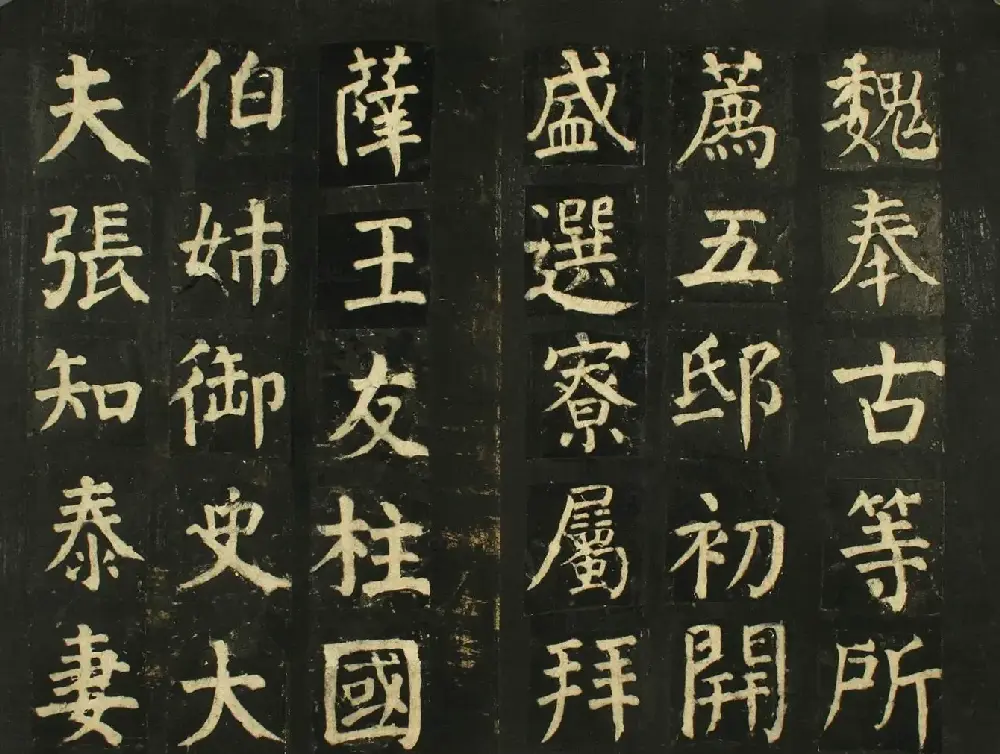 魏奉古等所
薦五邸初開
盛選寮屬拜
薩王友柱國
伯姊御史大
夫張知泰妻